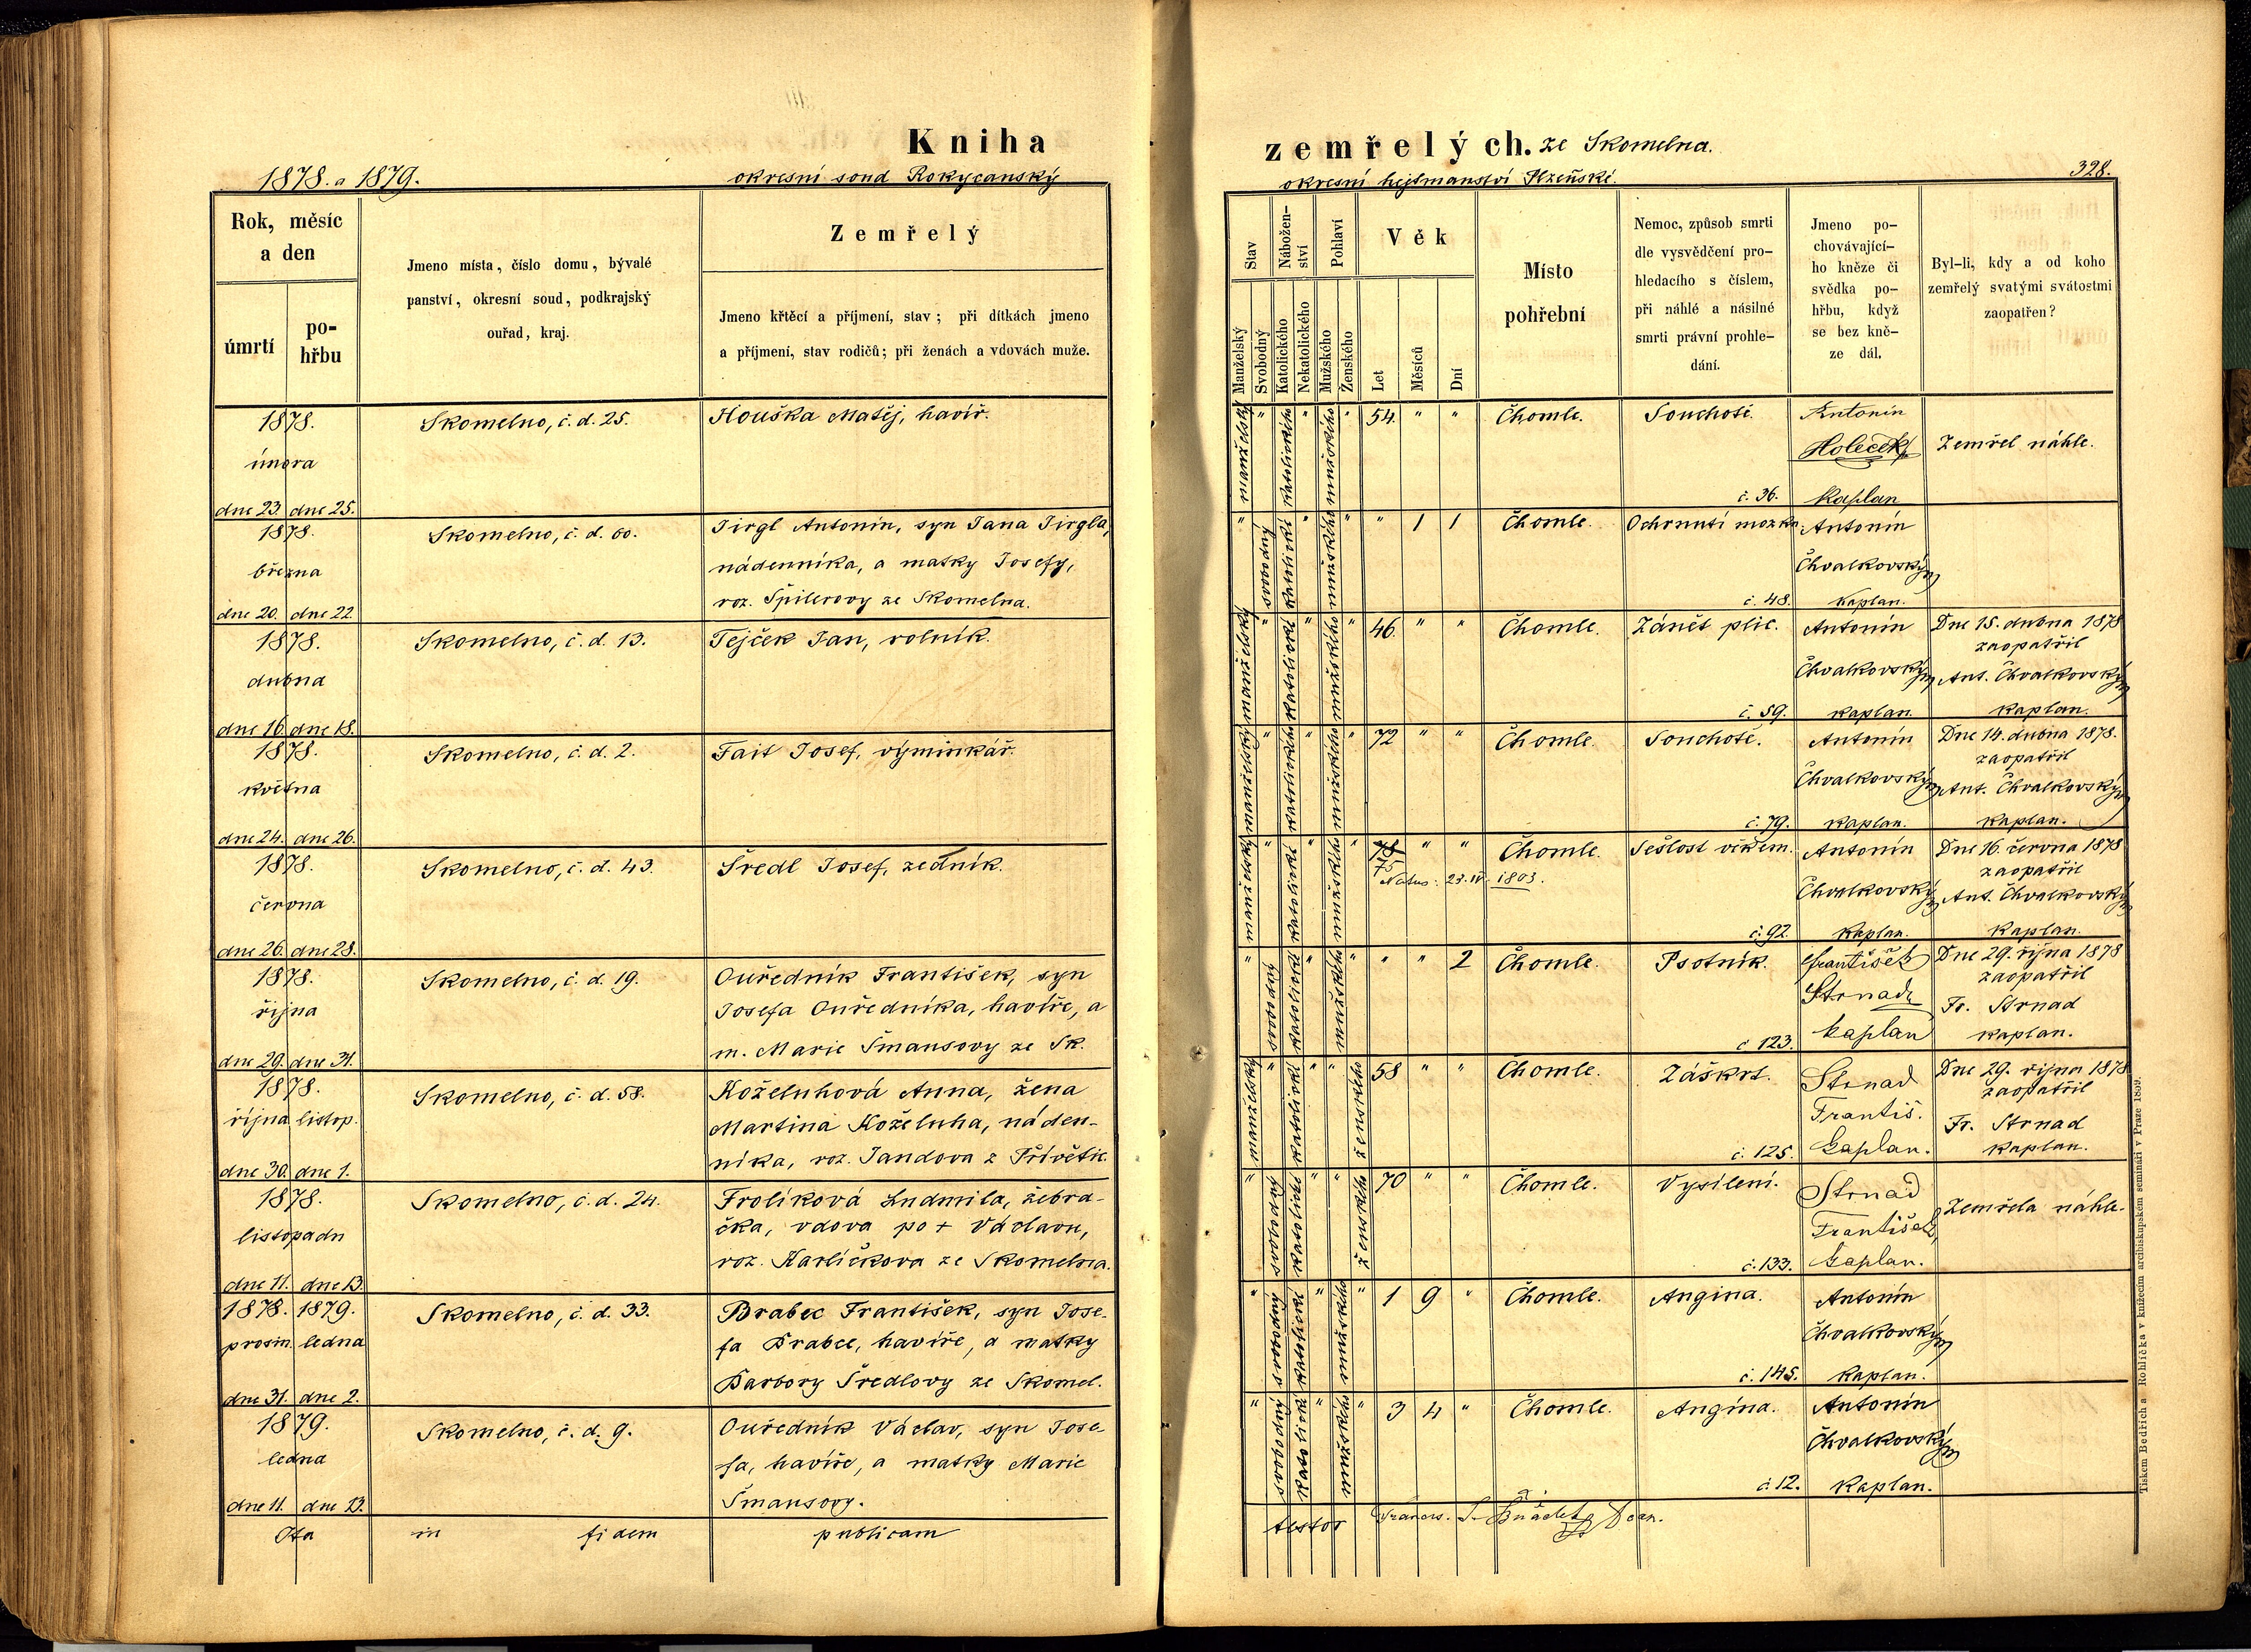 Kniha
1878. a 1879.
okresní soud Rokycanský
Rok, měsíc
a den
úmrtí
po-
hřbu
Jmeno místa, číslo domu, bývalé
panství, okresní soud, podkrajský
ouřad, kraj.
Zemřelý
Jmeno křtěcí a příjmení, stav; při dítkách jmeno
a příjmení, stav rodičů; při ženách a vdovách muže.
1878.
února
dne 23. dne 25.
Skomelno, č. d. 25.
Houška Matěj, havíř.
1878.
března
dne 20. dne 22
Skomelno, č. d. 60.
Jirgl Antonín, syn Jana Jirgla,
nádenníka, a matky Josefy,
roz. Špilerovy ze Skomelna.
1878.
dubna
dne 16. dne 18.
Skomelno, č. d. 13.
Tejček Jan, rolník.
1878.
května
dne 24. dne 26.
Skomelno, č. d. 2.
Fait Josef, výminkář.
1878.
června
dne 26. dne 28.
Skomelno, č. d. 43.
Šredl Josef, zedník.
1878.
října
dne 29. dne 31.
Skomelno, č. d. 19.
Ouředník František, syn
Josefa Ouředníka, havíře, a
m. Marie Šmausovy ze Sk.
1878.
října listop.
dne 30. dne 1.
Skomelno, č. d. 58.
Koželuhová Anna, žena
Martina Koželuha, náden-
níka, roz. Jandova z Přívětic.
1878.
listopadu
dne 11. dne 13.
Skomelno, č. d. 24.
Frolíková Ludmila, žebra-
čka, vdova po + Václavu,
roz. Karlíčkova ze Skomelna.
1878. 1879.
prosin. ledna
dne 31. dne 2.
Skomelno, č. d. 33.
Brabec František, syn Jose-
fa Brabce, havíře, a matky
Barbory Šredlovy ze Skomel.
1879.
ledna
dne 11. dne 13.
Skomelno, č. d. 9.
Ouředník Václav, syn Jose-
fa, havíře, a matky Marie
Šmausovy.
Ita in fidem publicam
zemřelých. ze Skomelna.
okresní hejtmanství Plzeňské.
328.
Stav
Nábožen-
ství
Pohlaví
Věk
Manželský
Svobodný
Katolického
Nekatolického
Mužského
Ženského
Let
Měsíců
Dní
Místo
pohřební
Nemoc, způsob smrti
dle vysvědčení pro-
hledacího s číslem,
při náhlé a násilné
smrti právní prohle-
dání.
Jmeno po-
chovávající-
ho kněze či
svědka po-
hřbu, když
se bez kně-
ze dál.
Byl-li, kdy a od koho
zemřelý svatými svátostmi
zaopatřen?
manželský " katolického " mužského " 54. " " Chomle. Souchotě.
č. 36.
Antonín
Holeček
Kaplan
Zemřel náhle.
" svobodný katolické " mužského " " 1 1 Chomle. Ochrnutí mozku.
č. 48.
Antonín
Chvalkovský
Kaplan.
manželský " katolické " mužského " 46. " " Chomle. Zánět plic.
č. 59.
Antonín
Chvalkovský
Kaplan.
Dne 15. dubna 1878
zaopatřil
Ant. Chvalkovský
Kaplan.
manželský " katolického " mužského " 72 " " Chomle. Souchotě.
č. 79.
Antonín
Chvalkovský
Kaplan.
Dne 14. dubna 1878.
zaopatřil
Ant. Chvalkovský
Kaplan.
manželský " katolické " mužského " 75 " " Chomle. Sešlost věkem.
Natus: 23. IV. 1803.
č. 92.
Antonín
Chvalkovský
Kaplan.
Dne 16. června 1878
zaopatřil
Ant. Chvalkovský
Kaplan.
" svobodný katolické " mužského " " " 2 Chomle. Psotník.
č 123.
František
Strnad
kaplan
Dne 29. října 1878
zaopatřil
Fr. Strnad
Kaplan.
manželský " katolické " " ženského 58 " " Chomle. Záškrt.
č. 125.
Strnad
Františ.
kaplan.
Dne 29. října 1878
zaopatřil
Fr. Strnad
Kaplan.
" svobodný katolické " " ženského 70 " " Chomle. Vysílení.
č. 133.
Strnad
František,
kaplan.
Zemřela náhle.
" svobodný katolické " mužského " 1 9 " Chomle. Angina.
č. 145.
Antonín
Chvalkovský
Kaplan.
" svobodný katolické " mužského " 3 4 " Chomle. Angína.
č. 12.
Antonín
Chvalkovský
Kaplan.
testor
Tiskem Bedřicha Rohlíčka v knížecím arcibiskupském semináři v Praze 1869.